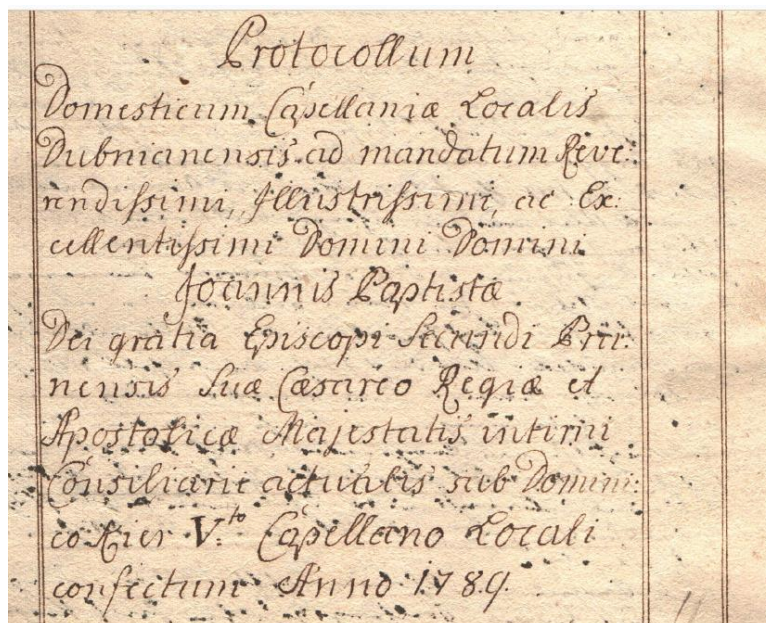 Protocollum
Domesticum Capellaniæ Localis
Dubnianensis ad mandatum Reve:
rendissimi, Illustrissimi, ac Ex:
cellentissimi Domini Domini
Joannis Baptistæ
Dei gratia Episcopi Secundi Brun:
nensis Suæ Cæsareo Regiæ et
Apostolicæ Majestatis intimi
Consiliarii actualis sub Domini:
co V.to Capellano Locali
confectum Anno 1789.